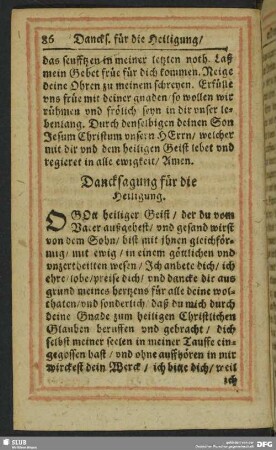 86 Dancks. für die Heiligung/
das seufftzen in meiner letzten noth. Laß
mein Gebet früe für dich kommen. Neige
deine Ohren zu meinem schreyen. Erfülle
vns früe mit deiner gnaden/ so wollen wir
rühmen vnd frölich seyn in dir vnser le-
benlang. Durch denselbigen deinen Son
Jesum Christum vnsern HErrn/ welcher
mit dir vnd dem heiligen Geist lebet vnd
regieret in alle ewigkeit/ Amen.
Dancksagung für die
Heiligung.
O GOtt heiliger Geist/ der du vom
Vater außgehest/ vnd gesand wirst
von dem Sohn/ bist mit jhnen gleichför-
mig/ mit ewig/ in einem göttlichen vnd
vnzertheilten wesen/ Ich anbete dich/ ich
ehre/lobe/preise dich/ vnd dancke dir aus
grund meines hertzens für alle deine wol-
thaten/vnd sonderlich/ daß du mich durch
deine Gnade zum heiligen Christlichen
Glauben beruffen vnd gebracht/ dich
selbst meiner seelen in meiner Tauffe ein-
gegossen hast/ vnd ohne auffhören in mir
wirckest dein Werck/ ich bitte dich/ weil
ich
SLUB
DFG